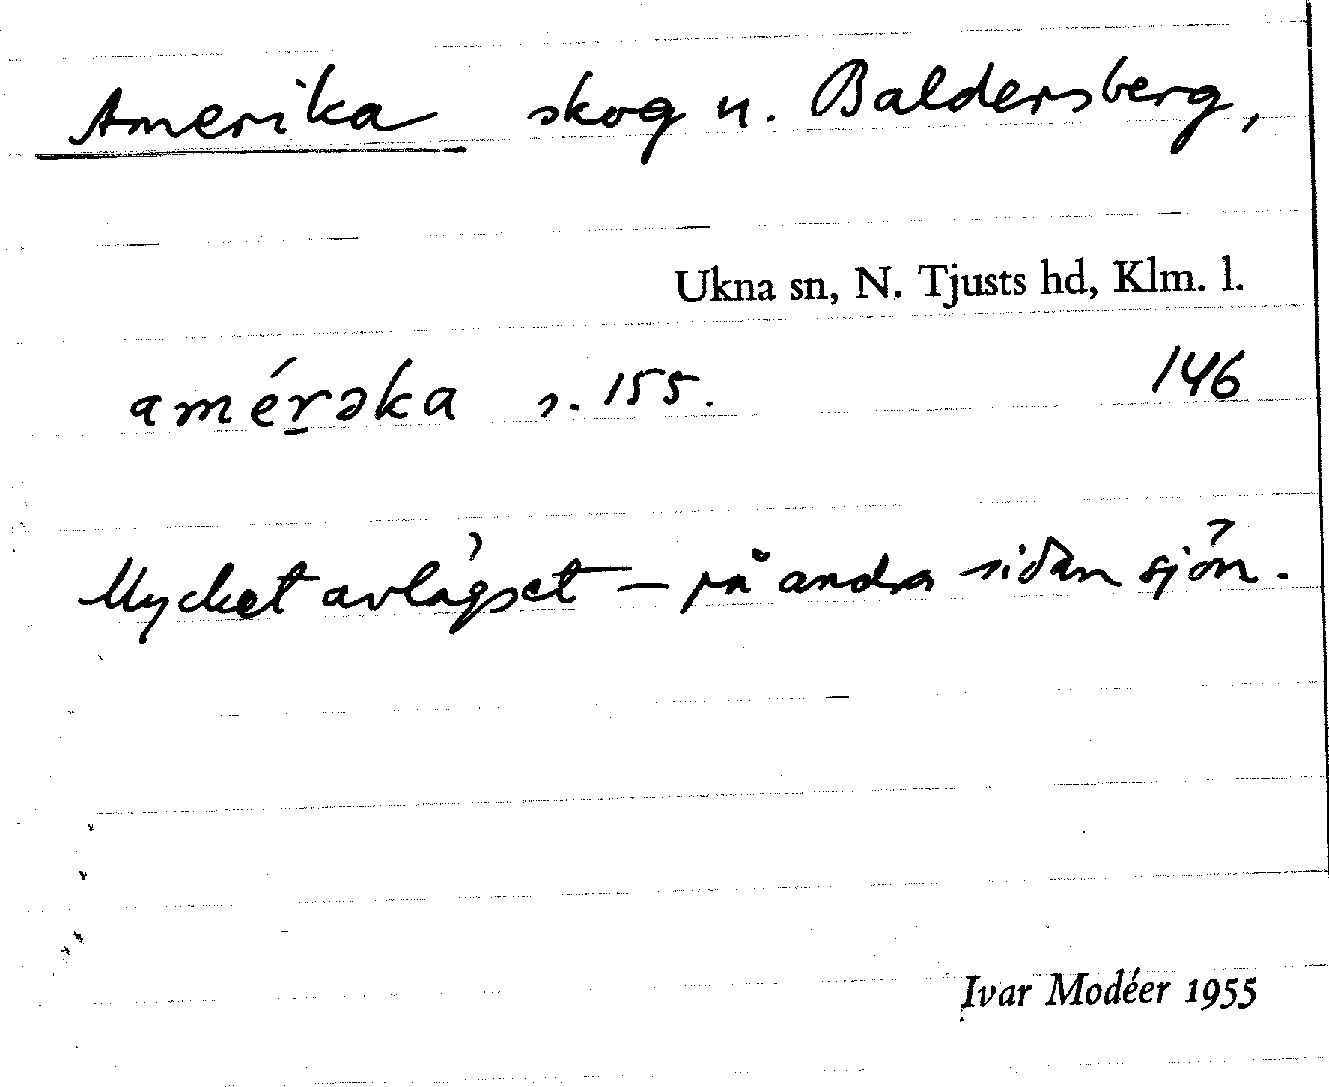 Amerika skog u. Baldersberg,
Ukna sn, N. Tjusts hd, Klm. l.
amér̲əka s. 155. 146
Mycket avlägset – på andra sidan sjön.
Ivar Modéer 1955